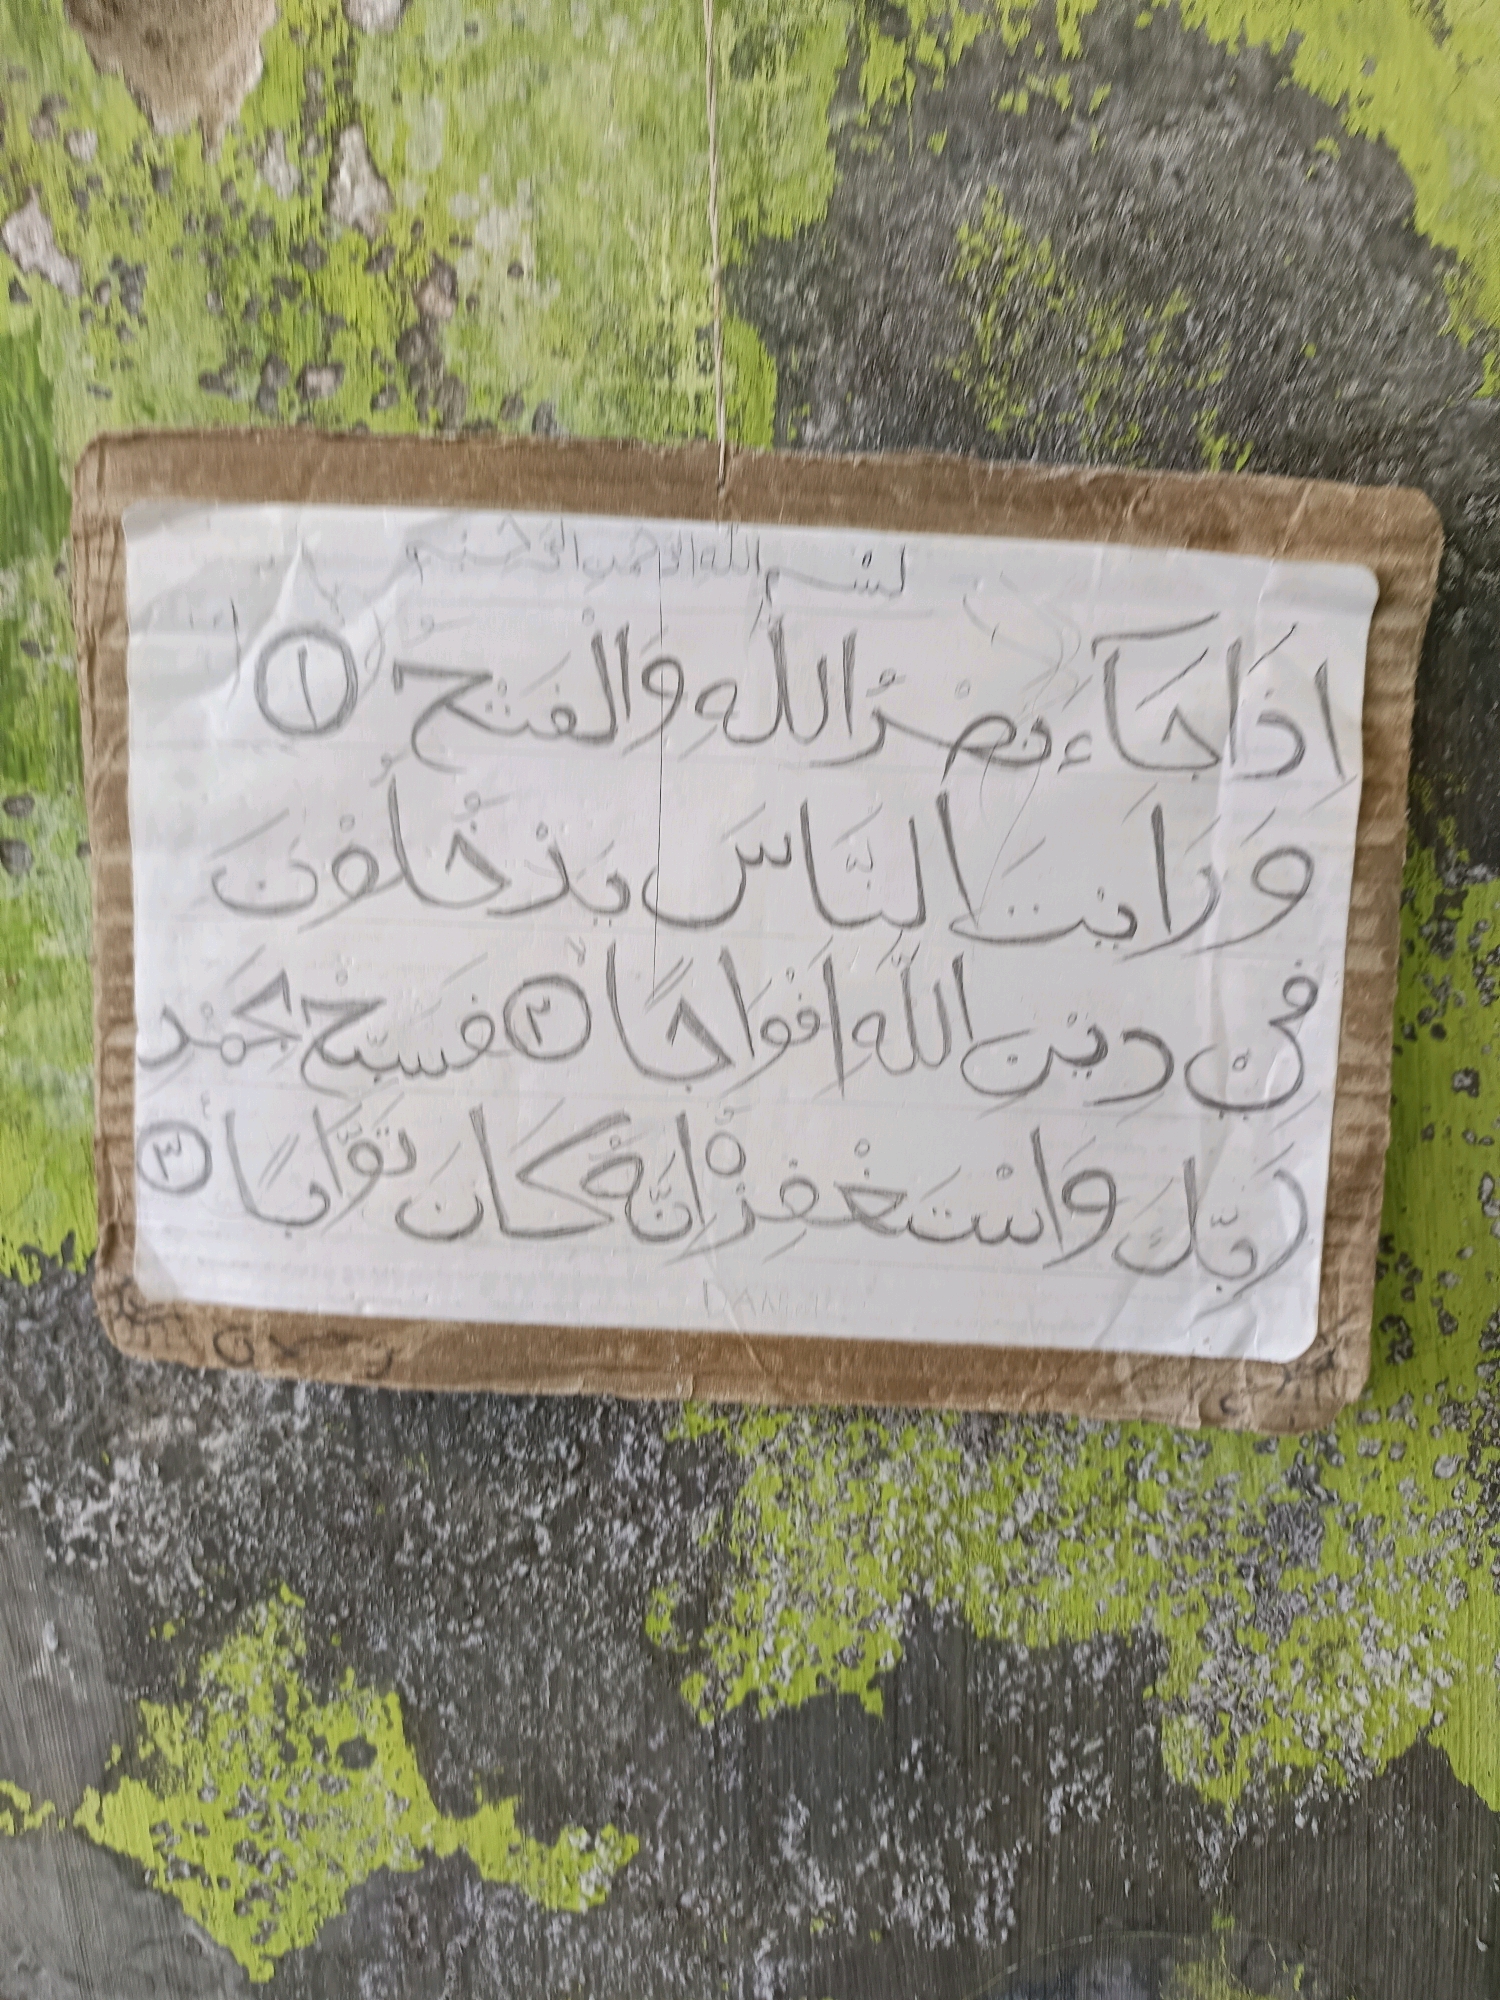 بسم الله الرحمن الرحيم
اِذَا جَآءَ نَصْرُ اللهِ وَالْفَتْحُ ١
وَرَاَيْتَ النَّاسَ يَدْخُلُوْنَ
فِيْ دِيْنِ اللّٰهِ اَفْوَاجًا ٢ فَسَبِّحْ بِحَمْدِ
رَبِّكَ وَاسْتَغْفِرْهُ اِنَّهٗ كَانَ تَوَّابًا ٣